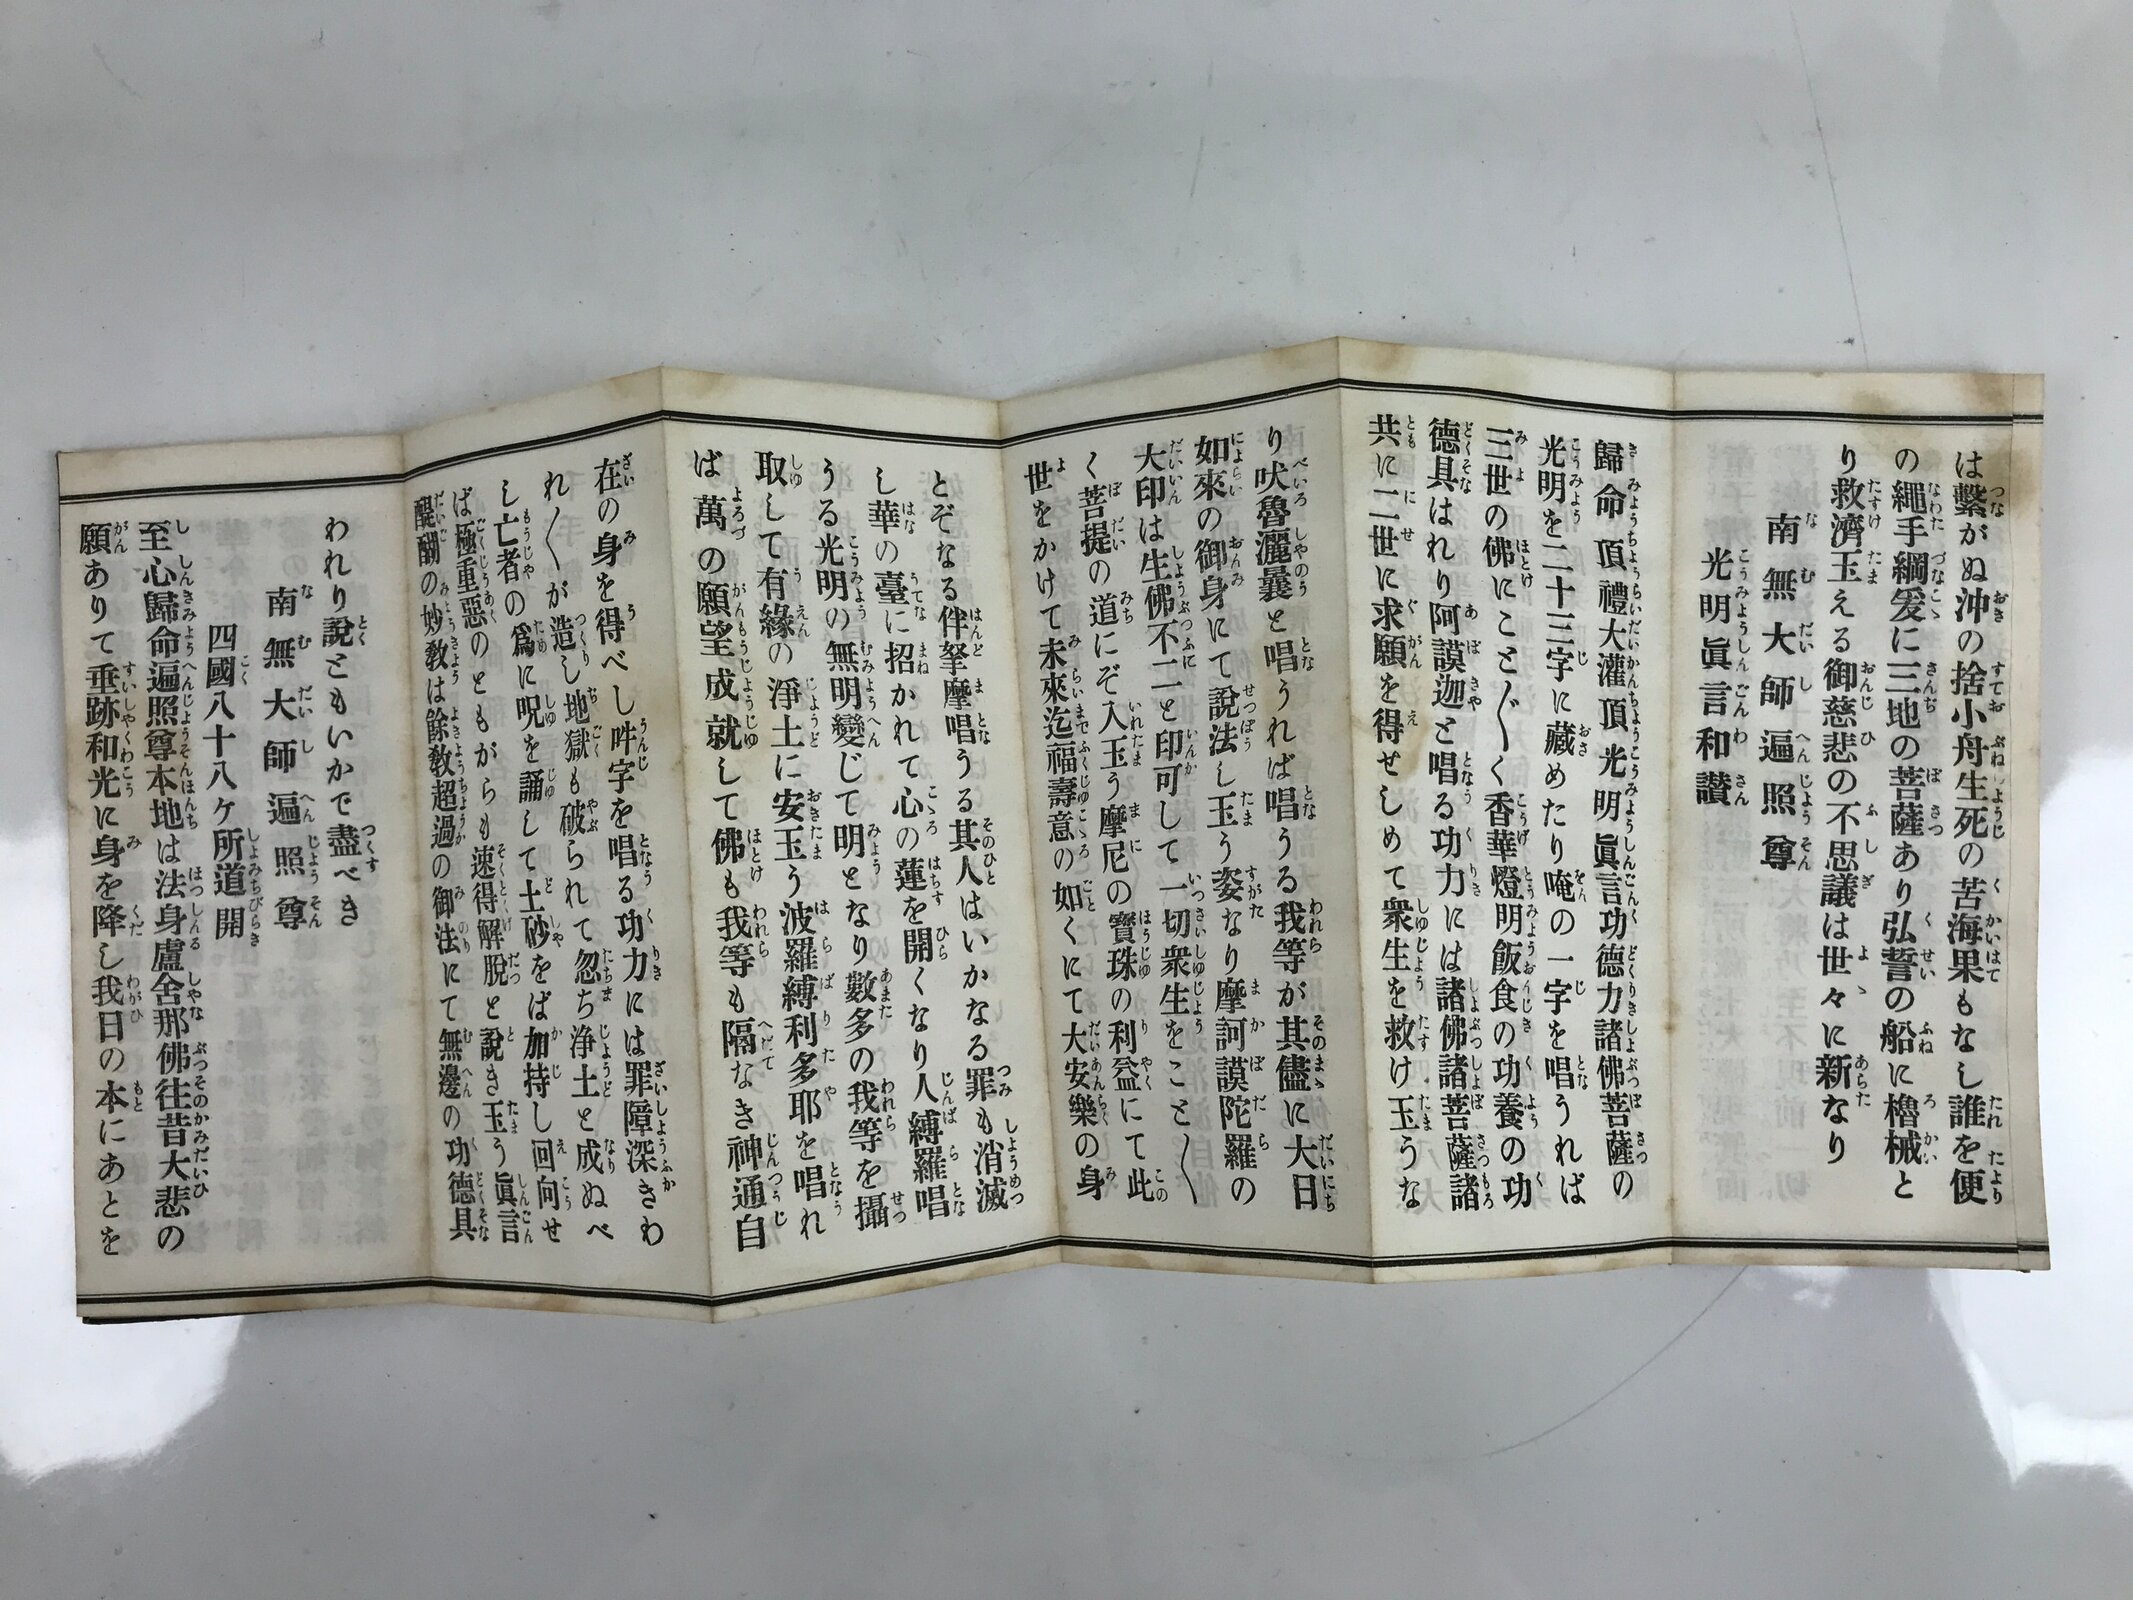 は繫がぬ沖の捨小舟生死の苦海果もなし誰を便
の繩手綱爰に三地の菩薩あり弘誓の船に櫓械と
り救濟玉える御慈悲の不思議は世々に新なり
南無大師遍照尊
光明眞言和讃
歸命頂禮大灌頂光明眞言功德力諸佛菩薩の
光明を二十三字に藏めたり唵の一字を唱うれば
三世の佛にこと〴〵く香華燈明飯食の功養の功
德具はれり阿謨迦と唱る功力には諸佛諸菩薩諸
共に二世に求願を得せしめて衆生を救け玉うな
り吠魯灑曩と唱うれば唱うる我等が其儘に大日
如來の御身にて說法し玉う姿なり摩訶謨陀羅の
大印は生佛不二と印可して一切衆生をこと〴〵
く菩提の道にぞ入玉う摩尼の寶珠の利益にて此
世をかけて未來迄福壽意の如くにて大安樂の身
とぞなる伴拏摩唱うる其人はいかなる罪も消滅
し華の臺に招かれて心の蓮を開くなり人縛羅唱
うる光明の無明變じて明となり數多の我等を攝
取して有緣の淨土に安玉う波羅縛利多耶を唱れ
ば萬の願望成就して佛も我等も隔なき神通自
在の身を得べし吽字を唱る功力には罪障深きわ
れ〳〵が造し地獄も破られて忽ち淨土と成ぬべ
し亡者の爲に呪を誦して土砂をば加持し回向せ
ば極重惡のともがらも速得解脫と說き玉う眞言
醍醐の妙敎は餘敎超過の御法にて無邊の功德具
われり說ともいかで盡べき
南無大師遍照尊
四國八十八ケ所道開
至心歸命遍照尊本地は法身盧舍那佛往昔大悲の
願ありて垂跡和光に身を降し我日の本にあとを